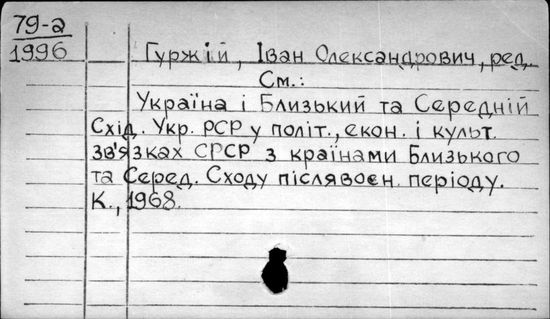 79-2
1996 Гуржій, Іван Олександрович, ред.
См.:
Україна і Близький та Середній
Схід. Укр. РСР у політ., екон. і культ.
зв'язках СРСР з країнами Близького
та Серед. Сходу післявоєн. періоду.
К., 1968.